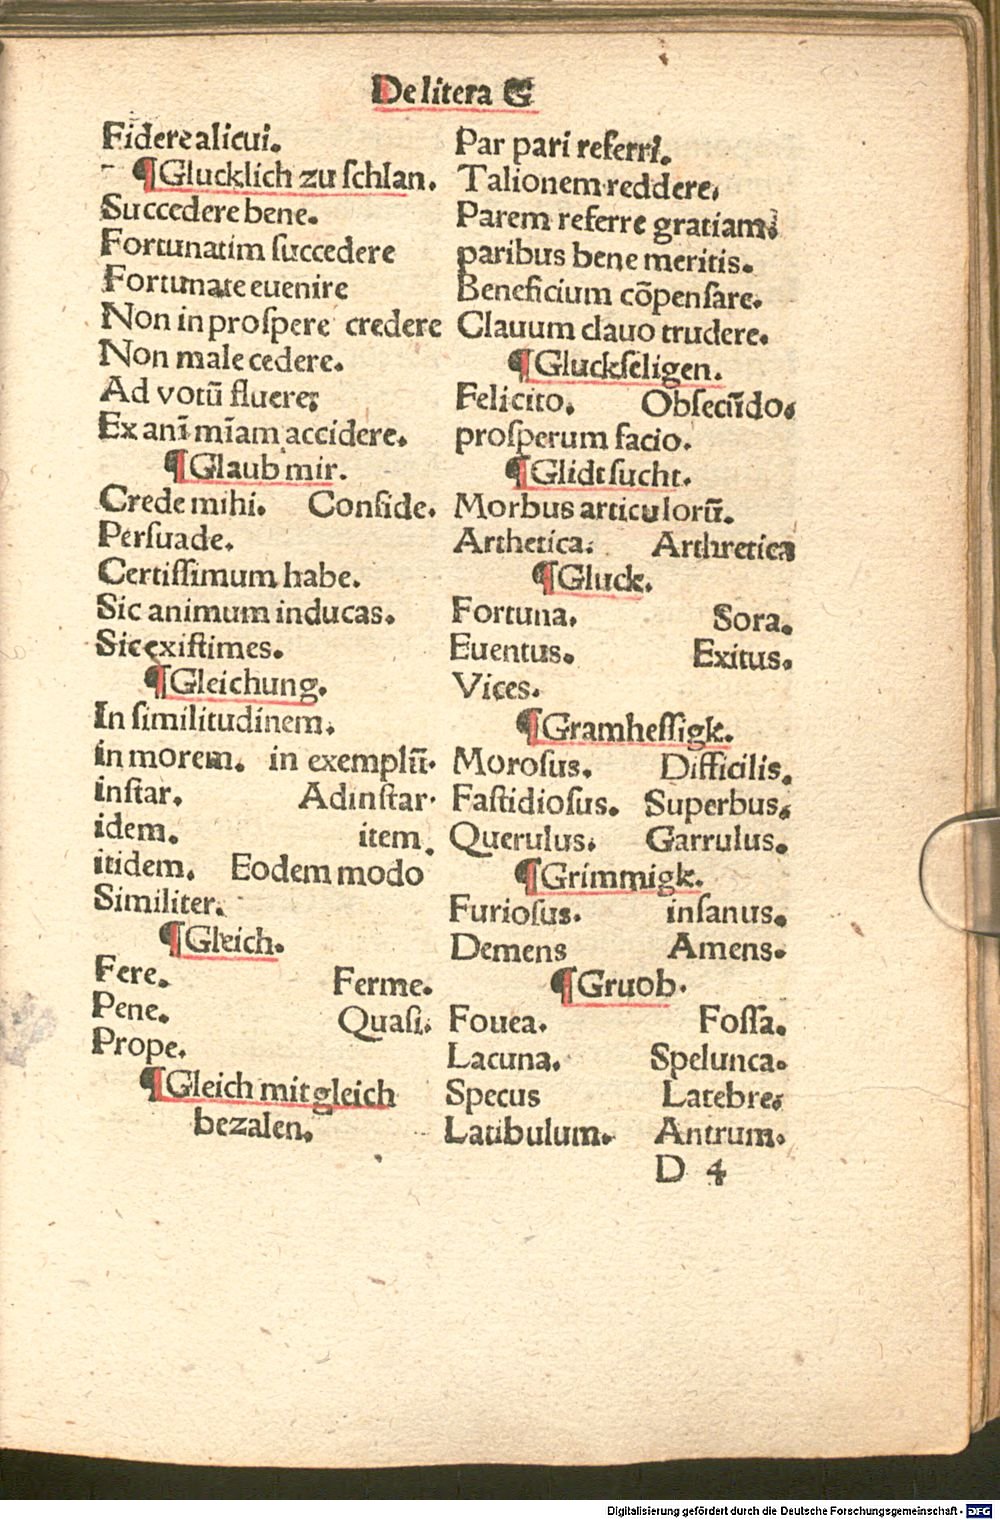 De litera G
Fidere alicui.
¶Glucklich zu ſchlan.
Succedere bene.
Fortunatim ſuccedere
Fortunate euenire
Non in proſpere credere
Non male cedere.
Ad votū fluere;
Ex anī mīam accidere.
¶Glaub mir.
Crede mihi. Confide.
Perſuade.
Certiſſimum habe.
Sic animum inducas.
Sic exiſtimes.
¶Gleichung.
In ſimilitudinem.
in morem. in exemplū.
inſtar. Adinſtar.
idem. item.
itidem. Eodem modo
Similiter.
¶Gleich.
Fere. Ferme.
Pene. Quaſi.
Prope.
¶Gleich mit gleich
bezalen.
Par pari referri.
Talionem reddere.
Parem referre gratiam;
paribus bene meritis.
Beneficium cõpenſare.
Clauum clauo trudere.
¶Gluckſeligen.
Felicito. Obſecūdo.
proſperum facio.
¶Glidtſucht.
Morbus articulorū.
Arthetica. Arthretica
¶Gluck.
Fortuna. Sora.
Euentus. Exitus.
Vices.
¶Gramheſſigk.
Moroſus. Difficilis.
Faſtidioſus. Superbus.
Querulus. Garrulus.
¶Grimmigk.
Furioſus. inſanus.
Demens Amens.
¶Gruob.
Fouea. Foſſa.
Lacuna. Spelunca.
Specus Latebre.
Latibulum. Antrum.
D 4
Digitalisierung gefördert durch die Deutsche Forschungsgemeinschaft - DFG